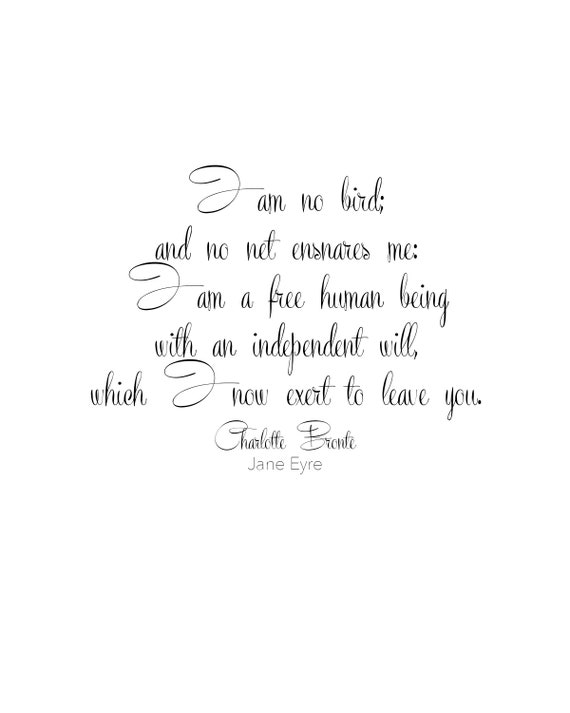 I am no bird;
and no net ensnares me:
I am a free human being
with an independent will,
which I now exert to leave you.
Charlotte Bronte
Jane Eyre